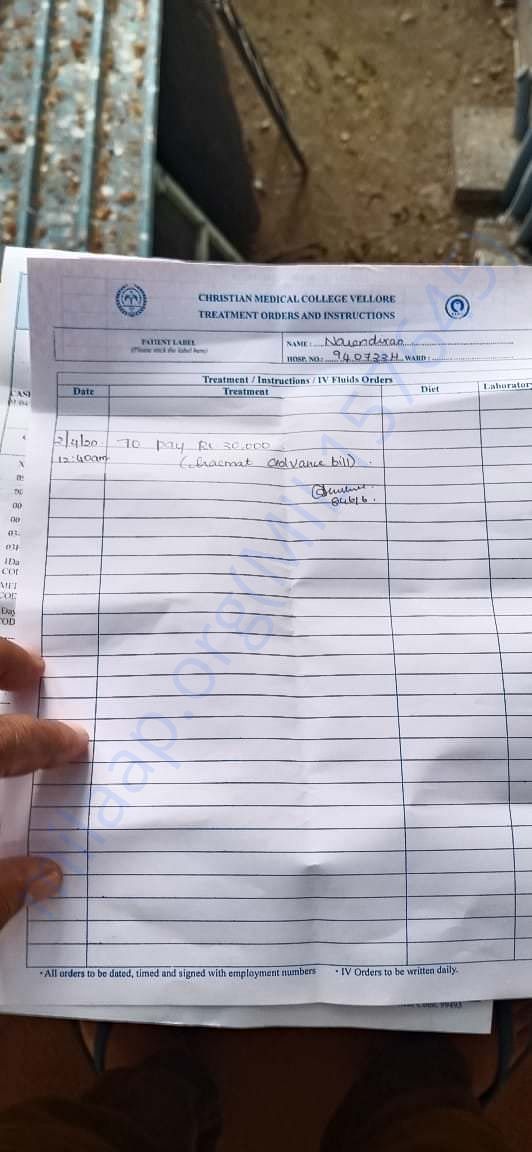 CHRISTIAN MEDICAL COLLEGE VELLORE
TREATMENT ORDERS AND INSTRUCTIONS
PATIENT LABEL
(Please stick the label here)
NAME : Narendiran
HOSP. NO.: 940722H WARD :
Treatment / Instructions / IV Fluids Orders
Date Treatment Diet Laborator
2/4/20 To pay Rs 30,000
12:40am advance bill)
• All orders to be dated, timed and signed with employment numbers • IV Orders to be written daily.
milaap.org(MIL457645)